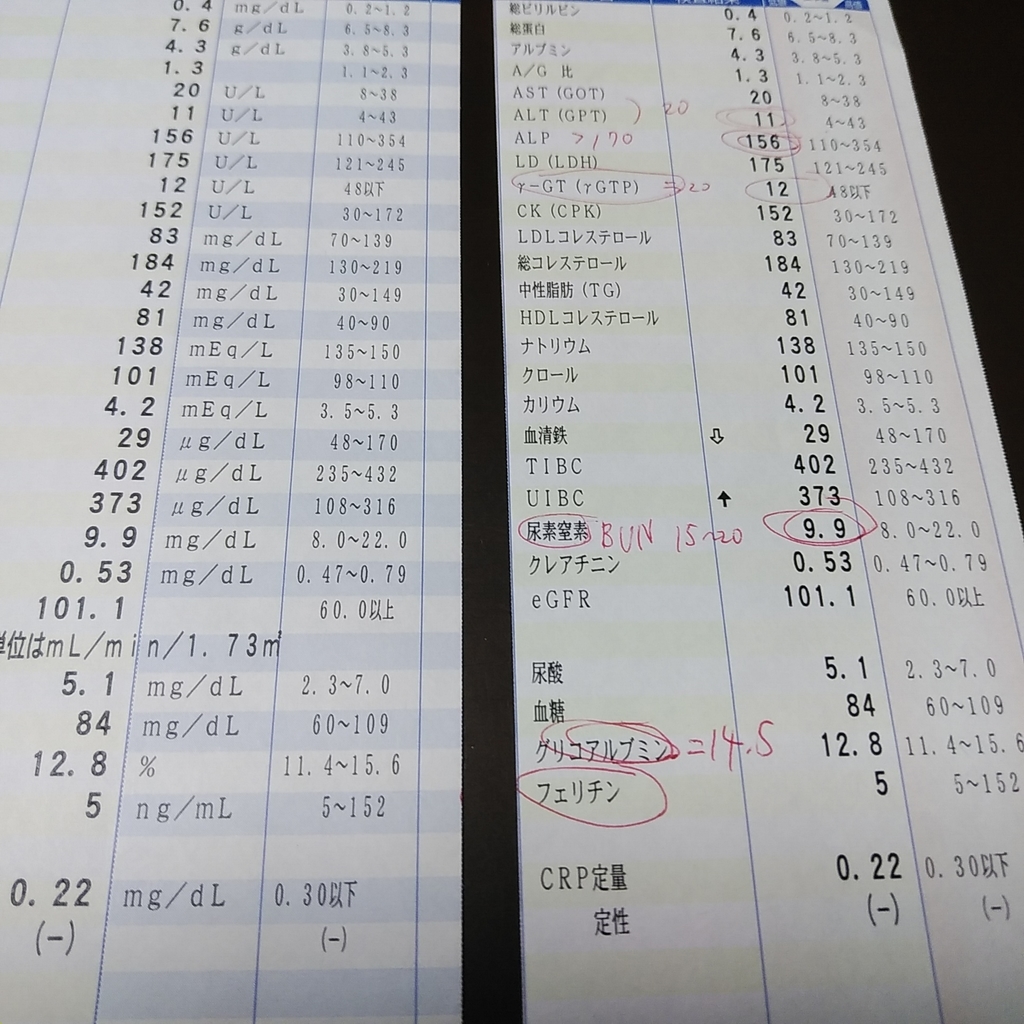 0.4 mg/dL 0.2~1.2
7.6 g/dL 6.5~8.3
4.3 g/dL 3.8~5.3
1.3 1.1~2.3
20 U/L 8~38
11 U/L 4~43
156 U/L 110~354
175 U/L 121~245
12 U/L 48以下
152 U/L 30~172
83 mg/dL 70~139
184 mg/dL 130~219
42 mg/dL 30~149
81 mg/dL 40~90
138 mEq/L 135~150
101 mEq/L 98~110
4.2 mEq/L 3.5~5.3
29 μg/dL 48~170
402 μg/dL 235~432
373 μg/dL 108~316
9.9 mg/dL 8.0~22.0
0.53 mg/dL 0.47~0.79
101.1 60.0以上
単位はmL/min/1.73㎡
5.1 mg/dL 2.3~7.0
84 mg/dL 60~109
12.8 % 11.4~15.6
5 ng/mL 5~152
0.22 mg/dL 0.30以下
(-) (-)
総ビリルビン 0.4 0.2~1.2
総蛋白 7.6 6.5~8.3
アルブミン 4.3 3.8~5.3
A/G 比 1.3 1.1~2.3
AST(GOT) 20 8~38
ALT(GPT) ) 20 11 4~43
ALP >170 156 110~354
LD(LDH) 175 121~245
γ-GT(γGTP) =20 12 48以下
CK(CPK) 152 30~172
LDLコレステロール 83 70~139
総コレステロール 184 130~219
中性脂肪(TG) 42 30~149
HDLコレステロール 81 40~90
ナトリウム 138 135~150
クロール 101 98~110
カリウム 4.2 3.5~5.3
血清鉄 ⇩ 29 48~170
TIBC 402 235~432
UIBC ↑ 373 108~316
尿素窒素 BUN 15~20 9.9 8.0~22.0
クレアチニン 0.53 0.47~0.79
eGFR 101.1 60.0以上
尿酸 5.1 2.3~7.0
血糖 84 60~109
グリコアルブミン =14.5 12.8 11.4~15.6
フェリチン 5 5~152
CRP定量 0.22 0.30以下
定性 (-) (-)